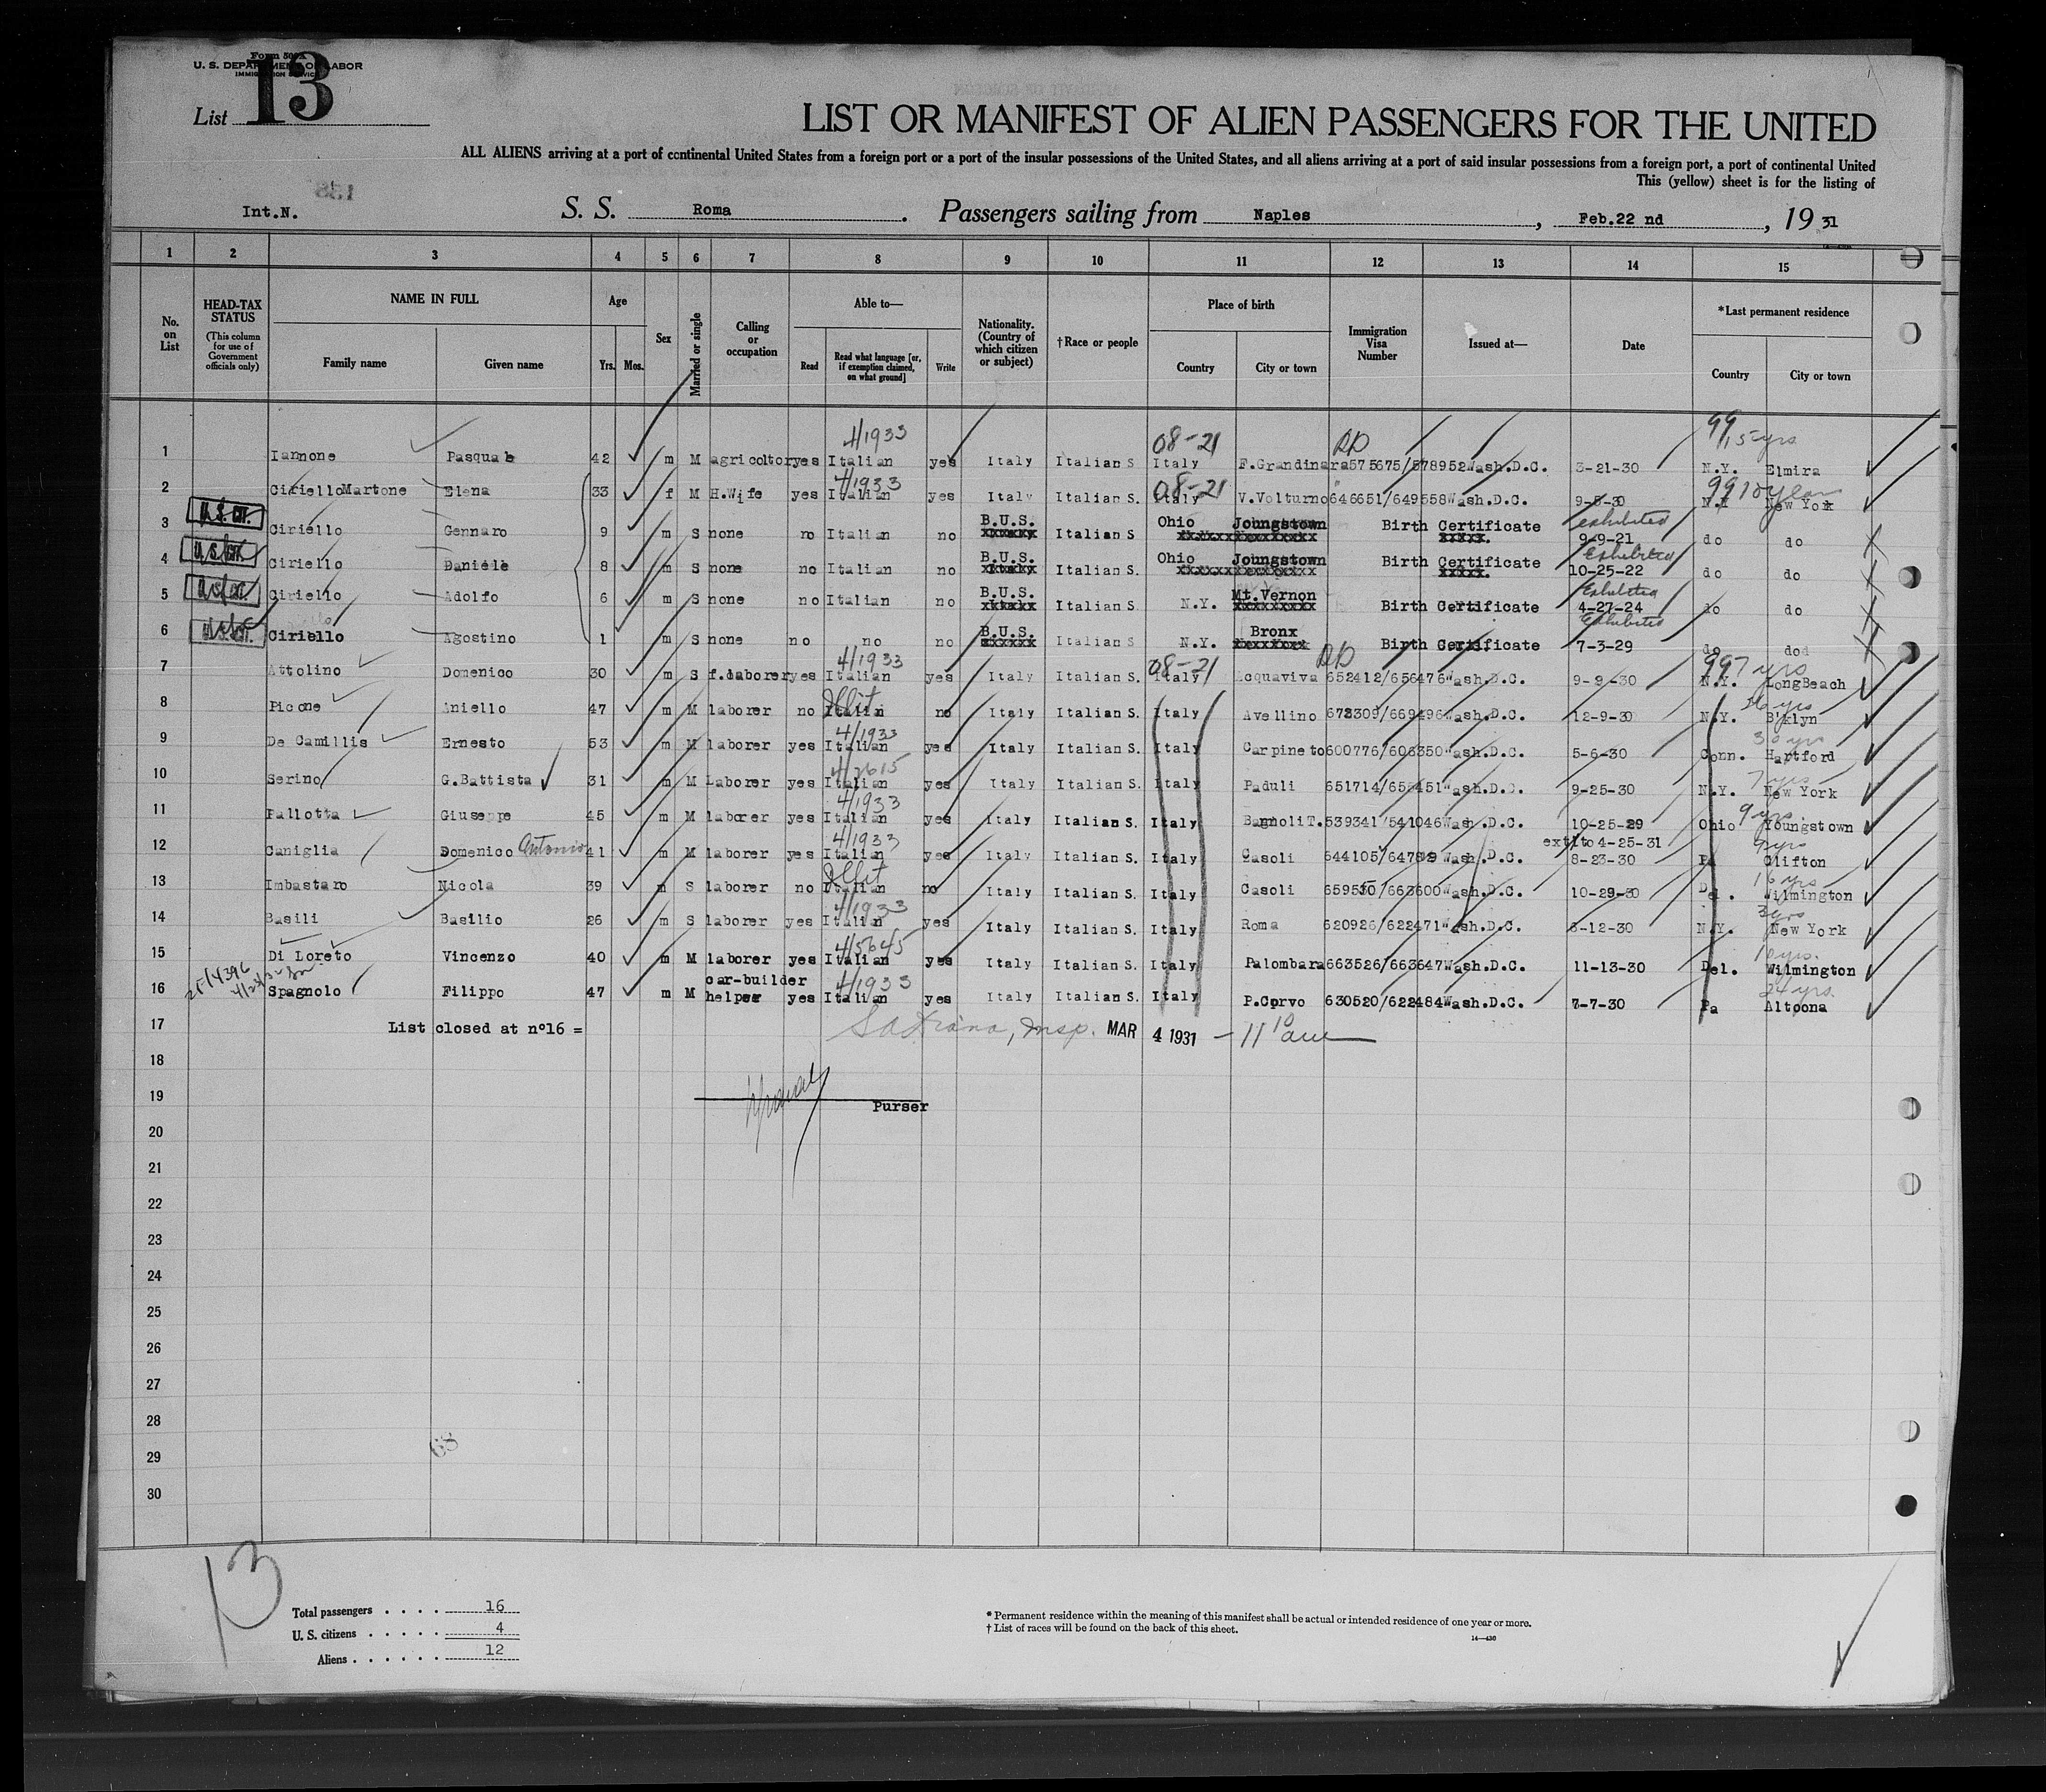 Form 500 A
U. S. DEPARTMENT OF LABOR
IMMIGRATION SERVICE
List 13
LIST OR MANIFEST OF ALIEN PASSENGERS FOR THE UNITED
ALL ALIENS arriving at a port of continental United States from a foreign port or a port of the insular possessions of the United States, and all aliens arriving at a port of said insular possessions from a foreign port, a port of continental United
This (yellow) sheet is for the listing of
138
Int.N. S. S. Roma . Passengers sailing from Naples , Feb.22 nd , 19 31
1 2 3 4 5 6 7 8 9 10 11 12 13 14 15
No. on List
HEAD-TAX STATUS
(This column for use of Government officials only)
NAME IN FULL
Family name Given name
Age
Yrs. Mos.
Sex
Married or single
Calling or occupation
Able to—
Read Read what language [or, if exemption claimed, on what ground] Write
Nationality. (Country of which citizen or subject)
†Race or people
Place of birth
Country City or town
Immigration Visa Number
Issued at—
Date
*Last permanent residence
Country City or town
4/1933 08-21 RP 99/15 yrs
1 Iannone Pasquale 42 m M agricoltor yes Italian yes Italy Italian S Italy F.Grandinara 575675/578952 Wash.D.C. 3-21-30 N.Y. Elmira
4/1933 08-21 99 10 years
2 Ciriello Martone Elena 33 f M H.Wife yes Italian yes Italy Italian S. Italy V.Volturno 646651/649558 Wash.D.C. 9-5-30 N.Y New York
U.S. CIT. B.U.S. Ohio Joungstown Birth Certificate exhibited
3 Ciriello Gennaro 9 m S none no Italian no Italian S 9-9-21 do do
U.S. CIT. B.U.S. Ohio Joungstown Birth Certificate Exhibited
4 Ciriello Daniele 8 m S none no Italian no Italian S. 10-25-22 do do
U.S. CIT. B.U.S. Mt.Vernon Exhibited
5 Ciriello Adolfo 6 m S none no Italian no Italian S. N.Y. Birth Certificate 4-27-24 do do
U.S. CIT. B.U.S. Bronx Exhibited
6 Ciriello Agostino 1 m S none no no no Italian S N.Y. Birth Certificate 7-3-29 do do
4/1933 08-21 RP 99 7 yrs
7 Attolino Domenico 30 m S f.laborer yes Italian yes Italy Italian S. Italy Acquaviva 652412/656476 Wash.D.C. 9-9-30 N.Y. LongBeach
Illit
8 Picone Aniello 47 m M laborer no Italian no Italy Italian S. Italy Avellino 673309/669496 Wash.D.C. 12-9-30 N.Y. B'klyn
4/1933 30 yrs
9 De Camillis Ernesto 53 m M laborer yes Italian yes Italy Italian S. Italy Carpineto 600776/606350 Wash.D.C. 5-6-30 Conn. Hartford
4/2615 7 yrs
10 Serino G.Battista 31 m M Laborer yes Italian yes Italy Italian S. Italy Paduli Wash.D.C. 9-25-30 N.Y. New York
4/1933 9 yrs
11 Pallotta Giuseppe 45 m M laborer yes Italian yes Italy Italian S. Italy Bagnoli T. 539341/541046 Wash.D.C. 10-25-29 Ohio Youngstown
4/1933 ext to 4-25-31
12 Caniglia Domenico Antonio 41 m M laborer yes Italian yes Italy Italian S. Italy Casoli Wash.D.C. 8-23-30 Pa Clifton
Illit 16 yrs
13 Imbastaro Nicola 39 m S laborer no Italian no Italy Italian S. Italy Casoli 659530/663600 Wash.D.C. 10-29-30 Del. Wilmington
4/1933 3 yrs
14 Basili Basilio 26 m S laborer yes Italian yes Italy Italian S. Italy Roma 620926/622471 Wash.D.C. N.Y. New York
4/5645 10 yrs.
15 Di Loreto Vincenzo 40 m M laborer yes Italian yes Italy Italian S. Italy Palombara 663526/663647 Wash.D.C. 11-13-30 Del. Wilmington
car-builder 4/1933 24 yrs.
16 Spagnolo Filippo 47 m M helper yes Italian yes Italy Italian S. Italy P.Corvo 630520/622484 Wash.D.C. 7-7-30 Pa Altoona
17 List closed at n°16 = Insp. MAR 4 1931 - 11 10 am
18
19
Purser
20
21
22
23
24
25
26
27
28
68
29
30
13
Total passengers . . . . 16
U. S. citizens . . . . . 4
Aliens . . . . . . 12
* Permanent residence within the meaning of this manifest shall be actual or intended residence of one year or more.
† List of races will be found on the back of this sheet.
14—430